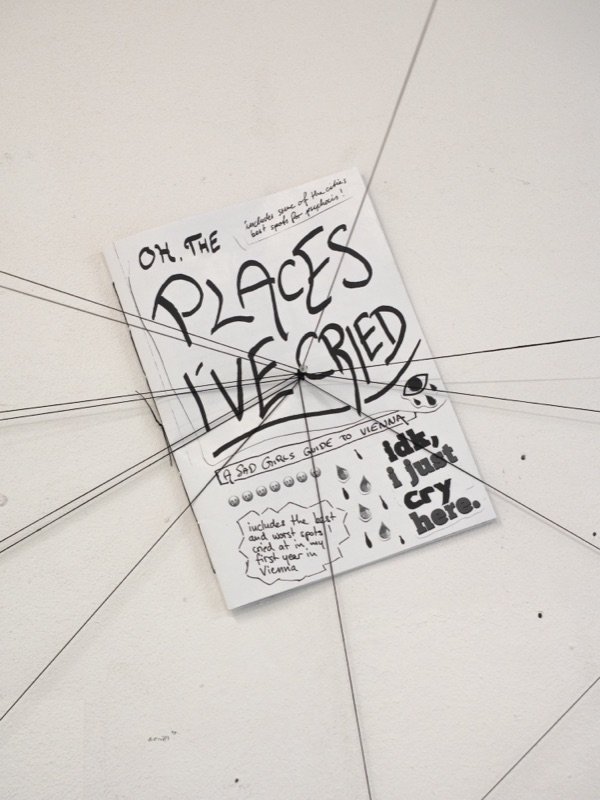 OH, THE
includes some of the cities
best spots for psychosis!
PLACES
I'VE CRIED
A SAD GIRLS GUIDE TO VIENNA
idk,
i just
cry
here.
includes the best
and worst spots I
cried at in my
first year in
Vienna